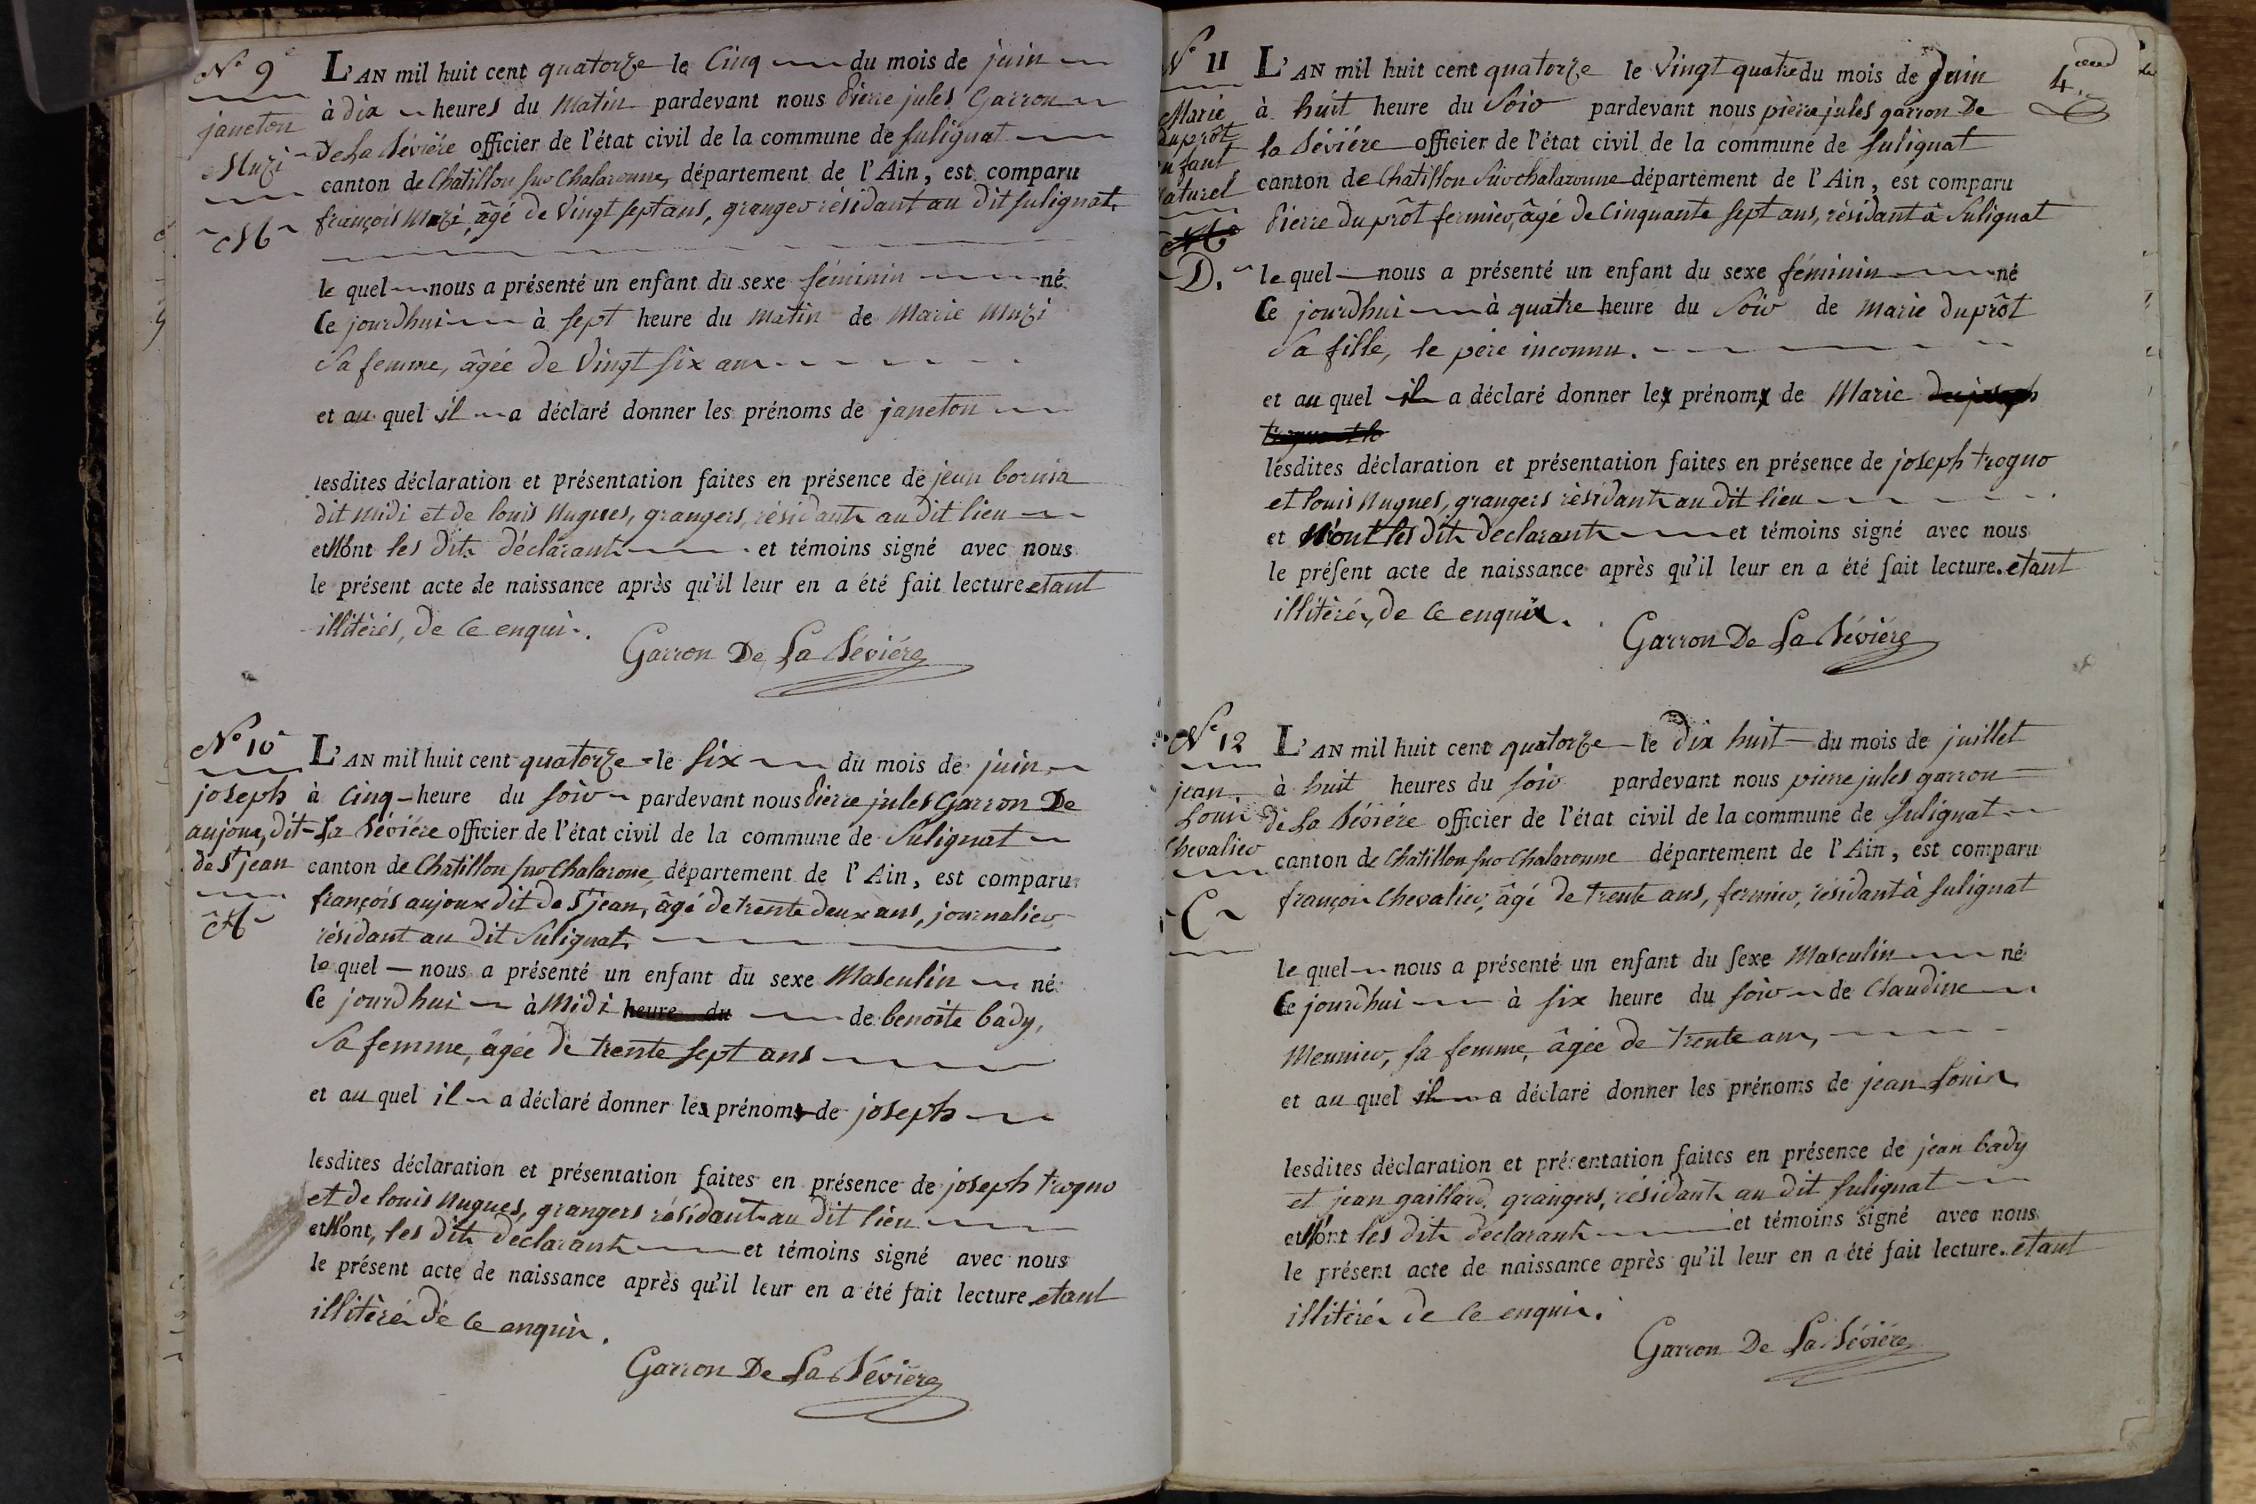 N° 9
janeton
Muzi
M
L'AN mil huit cent quatorze le Cinq du mois de juin
à dix heures du Matin pardevant nous Pierre jules Garron
De La Sévière officier de l'état civil de la commune de Sulignat
canton de Chatillon sur Chalaronne, département de l'Ain, est comparu
françois Muzi, âgé de Vingt sept ans, granger résidant au dit sulignat.
le quel nous a présenté un enfant du sexe féminin né
Ce jourdhui à sept heure du Matin de Marie Muzi
Sa femme, âgée de Vingt six ans
et au quel il a déclaré donner les prénoms de janeton
lesdites déclaration et présentation faites en présence de jean
dit Midi et de louis Nugues, grangers, résidants au dit lieu
et N'ont les dits déclarants et témoins signé avec nous
le présent acte de naissance après qu'il leur en a été fait lecture etant
illitérés, de ce enquis.
Garron De La Sévière
N° 10
joseph
aujoux, dit
de St jean
A
L'AN mil huit cent quatorze le six du mois de juin
à Cinq heure du soir pardevant nous Pierre jules Garron De
La Sévière officier de l'état civil de la commune de Sulignat
canton de Chatillon sur Chalarone, département de l'Ain, est comparu
françois aujoux dit de St jean, âgé de trente deux ans, journalier,
résidant au dit Sulignat.
le quel nous a présenté un enfant du sexe Masculin né
Ce jourdhui à Midi heure du de benoite bady,
Sa femme, âgée de trente sept ans
et au quel il a déclaré donner les prénoms de joseph
lesdites déclaration et présentation faites en présence de joseph trogno
et de louis Nugues, grangers résidants au dit lieu
et N'ont, les dits déclarants et témoins signé avec nous
le présent acte de naissance après qu'il leur en a été fait lecture. etant
illitérés de ce enquis.
Garron De La Sévière
4.
N° 11
Marie
Duprôt
enfant
Naturel
D.
L'AN mil huit cent quatorze le Vingt quatre du mois de Juin
à huit heure du Soir pardevant nous pierre jules garron De
la Sévière officier de l'état civil de la commune de Sulignat
canton de Chatillon Sur chalaronne département de l'Ain, est comparu
Pierre Duprôt fermier, âgé de Cinquante sept ans, résidant à Sulignat
le quel nous a présenté un enfant du sexe féminin né
Ce jourdhui à quatre heure du Soir de Marie Duprôt
Sa fille, le père inconnu.
et au quel il a déclaré donner les prénoms de Marie
lesdites déclaration et présentation faites en présence de joseph trogno
et louis Nugues, grangers résidants au dit lieu
et N'ont les dits declarants et témoins signé avec nous
le présent acte de naissance après qu'il leur en a été fait lecture. etant
illitérés, de ce enquis.
Garron De La Sévière
N° 12
jean
Louis
Chevalier
C
L'AN mil huit cent quatorze le Dix huit du mois de juillet
à huit heures du soir pardevant nous pierre jules garron
de La Sévière officier de l'état civil de la commune de sulignat
canton de Chatillon sur Chalaronne département de l'Ain, est comparu
françois Chevalier, âgé de trente ans, fermier, résidant à sulignat
le quel nous a présenté un enfant du sexe Masculin né
Ce jourdhui à six heure du soir de Claudine
Meunier, sa femme, âgée de trente ans,
et au quel il a déclaré donner les prénoms de jean Louis
lesdites déclaration et présentation faites en présence de jean bady
et jean gaillard, grangers, résidants au dit sulignat
et N'ont les dits declarants et témoins signé avec nous
le présent acte de naissance après qu'il leur en a été fait lecture. etant
illitérés de ce enquis.
Garron De La Sévière